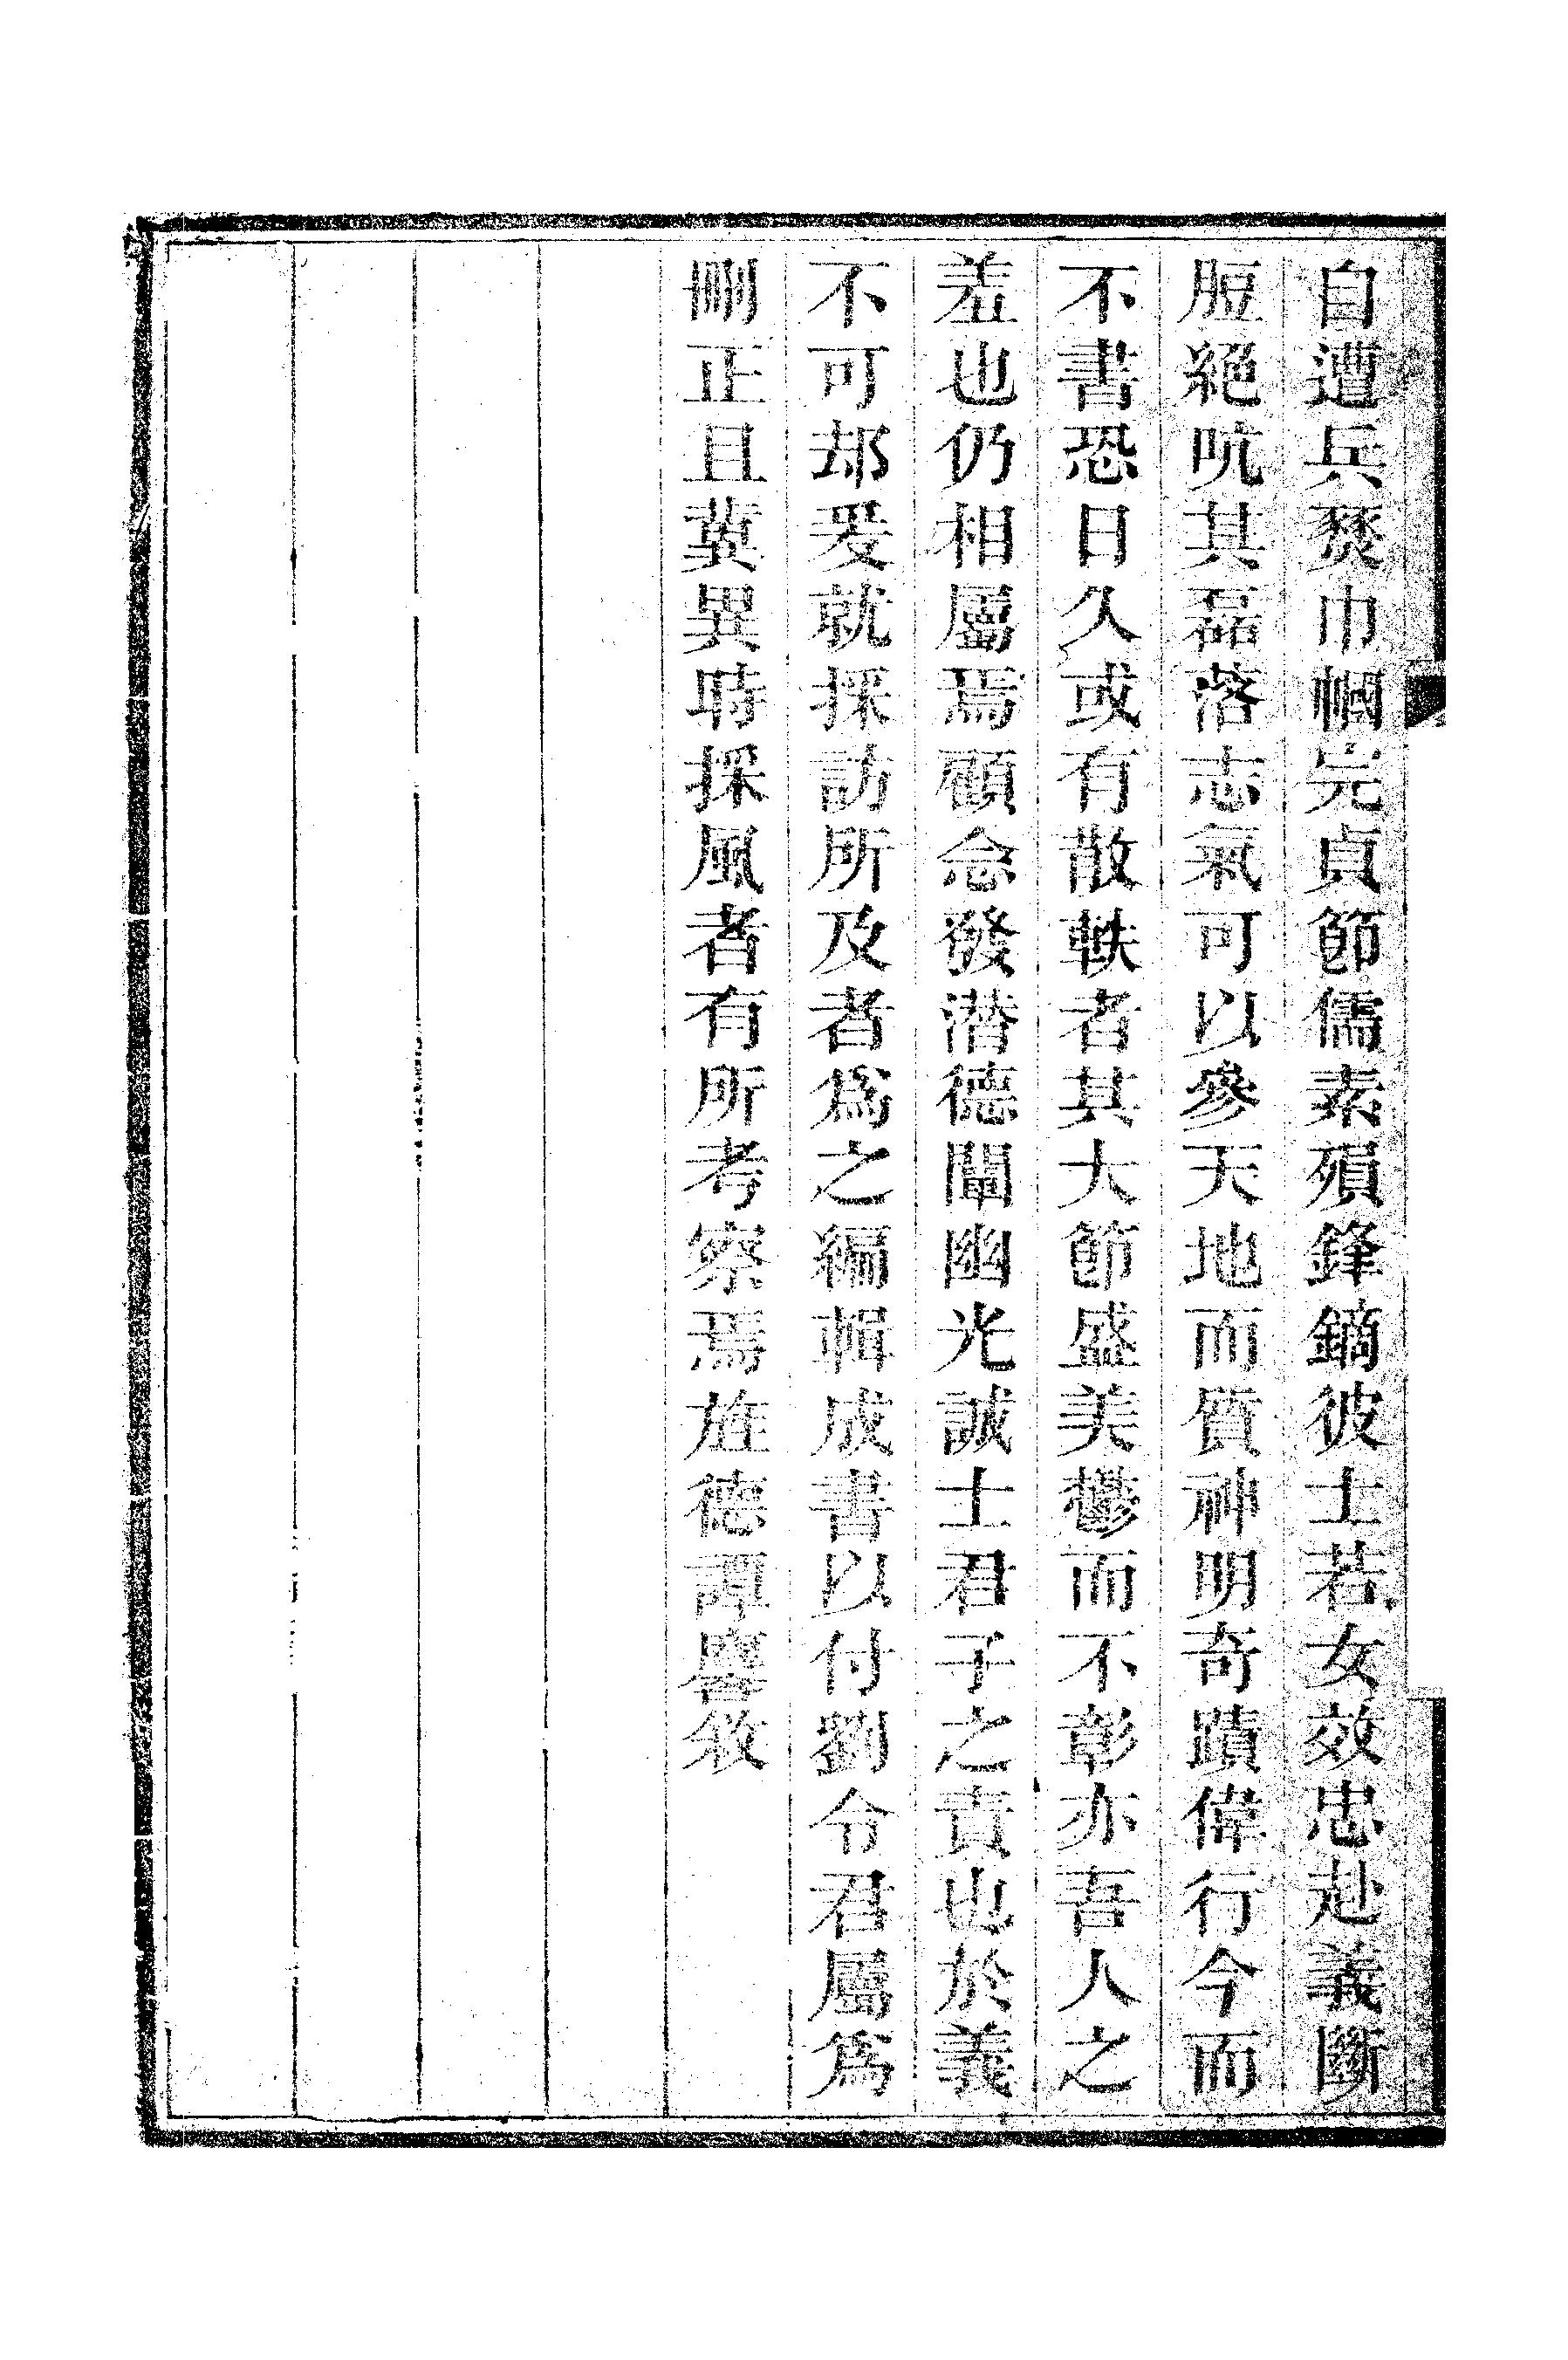 自遭兵燹巾幗完貞節儒素殞鋒鏑彼士若女效忠赴義斷
脰絕吭其磊落志氣可以參天地而質神明奇蹟偉行今而
不書恐日久或有散軼者其大節盛美鬱而不彰亦吾人之
羞也仍相屬焉顧念發潛德闡幽光誠士君子之責也於義
不可却爰就採訪所及者爲之編輯成書以付劉令君屬爲
刪正且冀異時採風者有所考察焉旌德譚麐敘